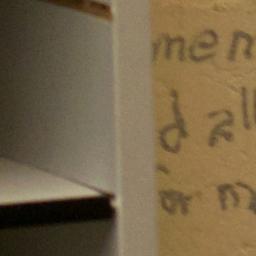 men
d all
or na